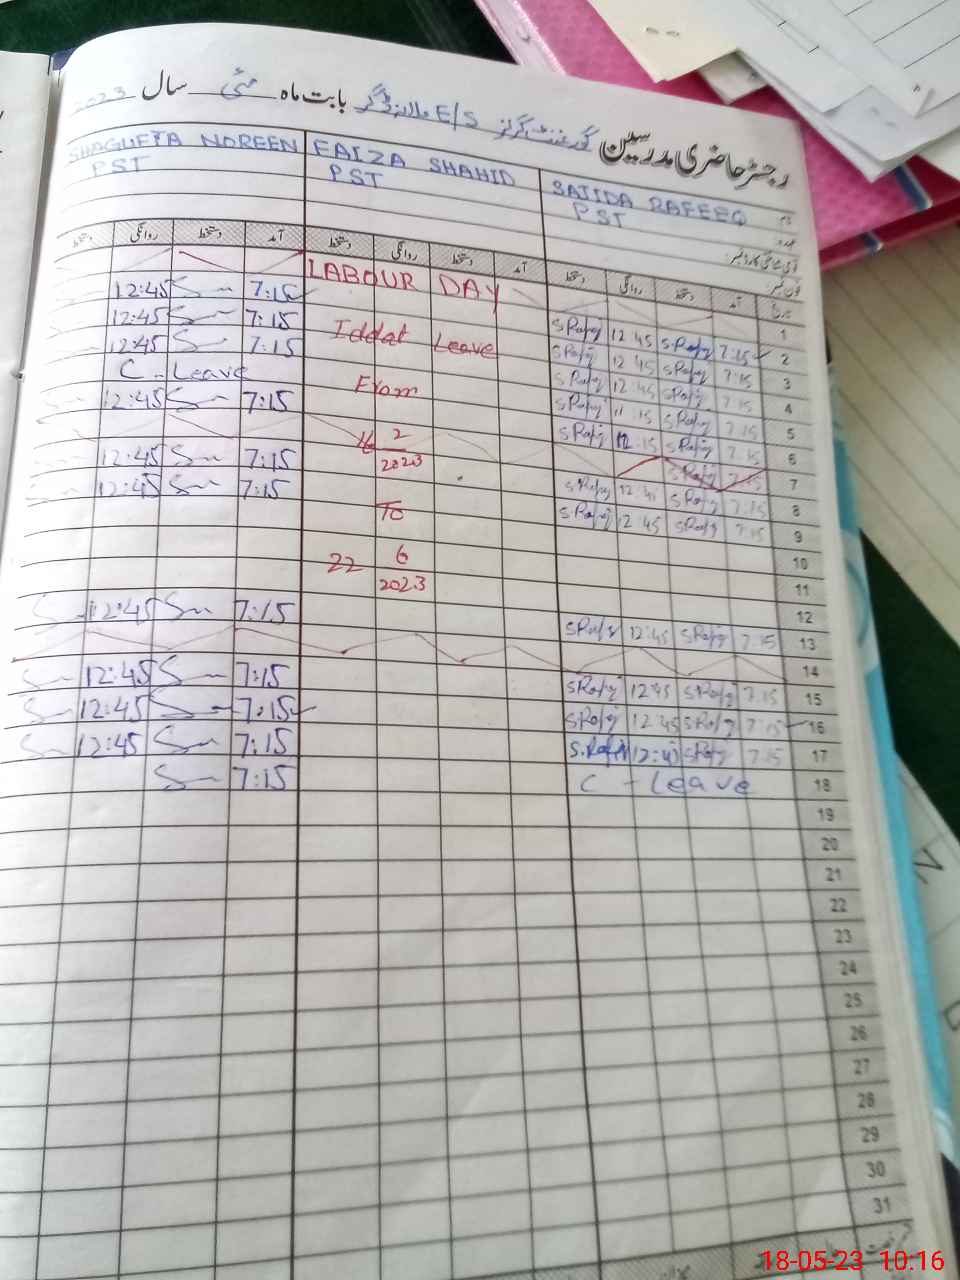 رجسٹر حاضری مدرسین گورنمنٹ گرلز E/S بابت ماہ مئی سال 2023
SAJIDA RAFEEQ FAIZA SHAHID SHAGUFTA NOREEN
PST PST PST
تاریخ آمد دستخط روانگی دستخط آمد دستخط روانگی دستخط آمد دستخط روانگی دستخط
1 LABOUR DAY
2 7:15 S.Rafiq 12:45 S.Rafiq 7:15 12:45
3 7:15 S.Rafiq 12:45 S.Rafiq Iddat Leave 7:15 12:45
4 7:15 S.Rafiq 12:45 S.Rafiq 7:15 12:45
5 7:15 S.Rafiq 11:15 S.Rafiq From C - Leave
6 7:15 S.Rafiq 12:15 S.Rafiq 7:15 12:45
7 7:15 S.Rafiq 16 2/2023
8 7:15 S.Rafiq 12:45 S.Rafiq 7:15 12:45
9 7:15 S.Rafiq 12:45 S.Rafiq To 7:15 12:45
10
11 22 6/2023
12
13 7:15 S.Rafiq 12:45 S.Rafiq 7:15 12:45
14
15 7:15 S.Rafiq 12:45 S.Rafiq 7:15 12:45
16 7:15 S.Rafiq 12:45 S.Rafiq 7:15 12:45
17 7:15 S.Rafiq 12:45 S.Rafiq 7:15 12:45
18 C - Leave 7:15
19
20
21
22
23
24
25
26
27
28
29
30
31
18-05-23 10:16